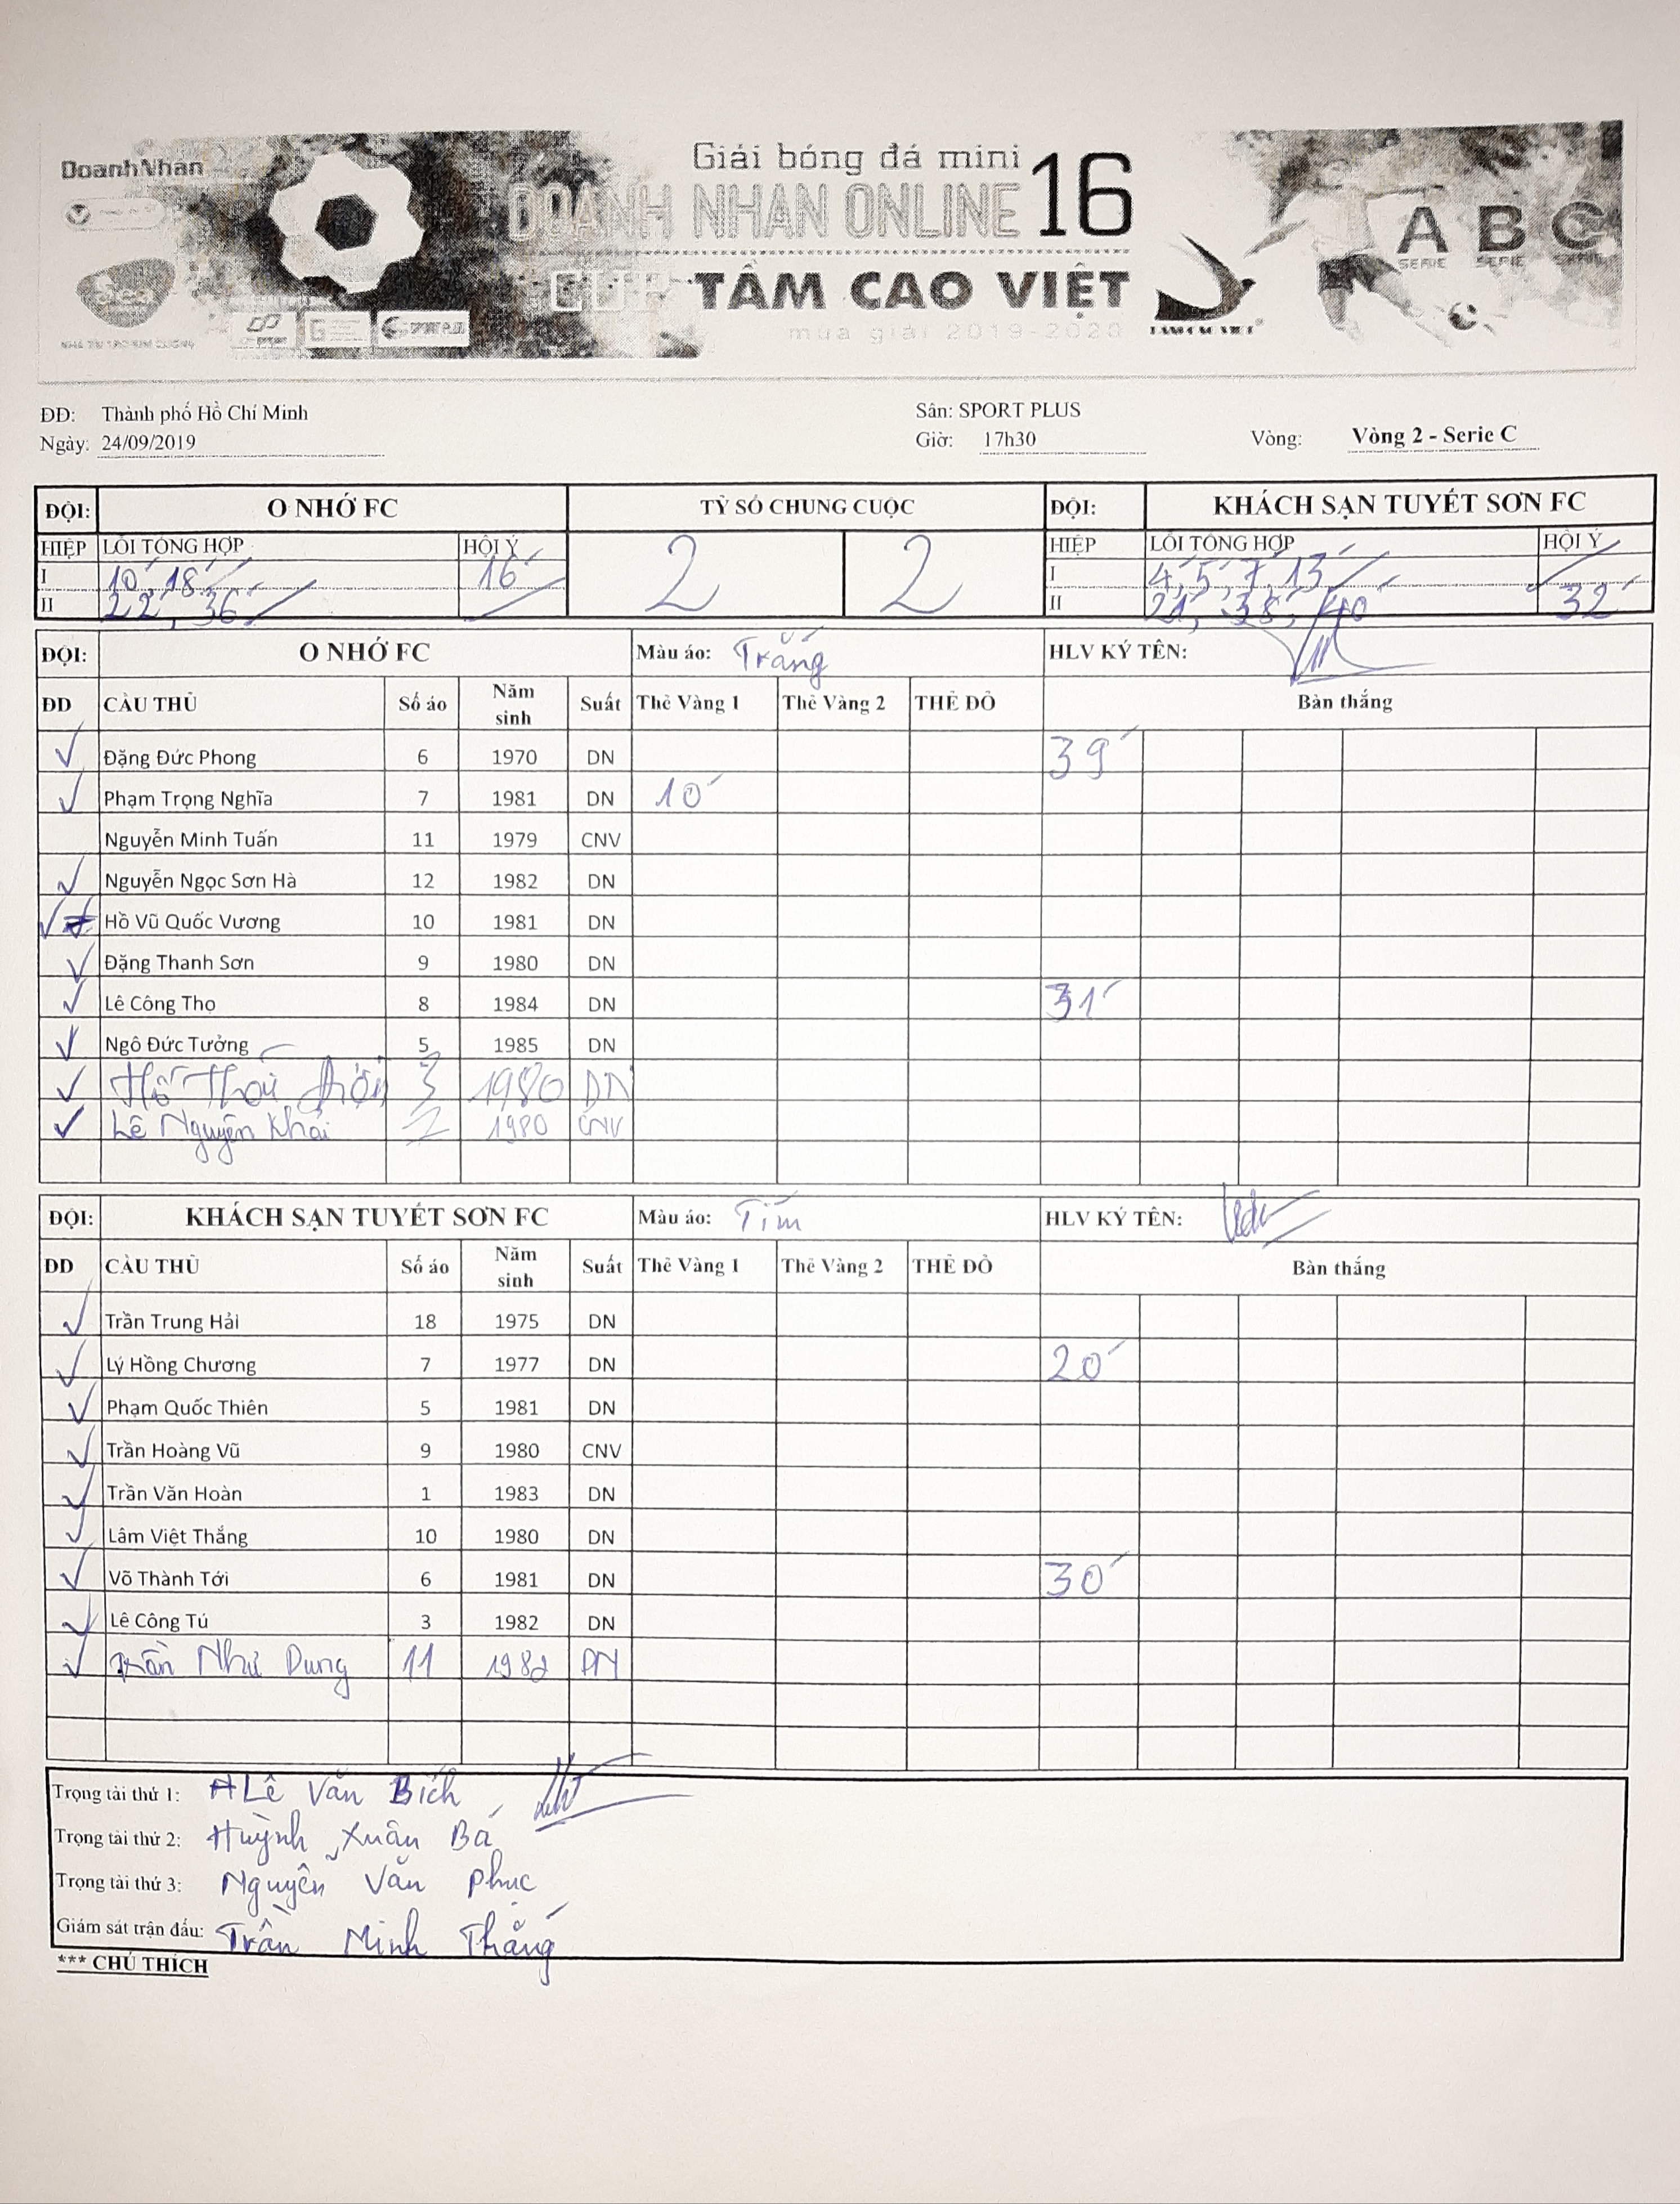 DoanhNhan
Giải bóng đá mini
DOANH NHAN ONLINE 16
CUP TẦM CAO VIỆT
mùa giải 2019-2020
Sea
SPORT PLUS
TAM CAO VIET
A B C
SERIE SERIE SERIE
NHÀ TÀI TRỢ KIM CƯƠNG
ĐĐ: Thành phố Hồ Chí Minh Sân: SPORT PLUS
Ngày: 24/09/2019 Giờ: 17h30 Vòng: Vòng 2 - Serie C
ĐỘI: O NHỚ FC TỶ SỐ CHUNG CUỘC ĐỘI: KHÁCH SẠN TUYẾT SƠN FC
HIỆP LỖI TỔNG HỢP HỘI Ý 2 2 HIỆP LỖI TỔNG HỢP HỘI Ý
I 10', 18' 16' I 4', 5', 7', 13'
II 22', 36' II 21', 38', 40' 32'
ĐỘI: O NHỚ FC Màu áo: Trắng HLV KÝ TÊN:
ĐD CẦU THỦ Số áo Năm sinh Suất Thẻ Vàng 1 Thẻ Vàng 2 THẺ ĐỎ Bàn thắng
Đặng Đức Phong 6 1970 DN 39'
Phạm Trọng Nghĩa 7 1981 DN 10'
Nguyễn Minh Tuấn 11 1979 CNV
Nguyễn Ngọc Sơn Hà 12 1982 DN
Hồ Vũ Quốc Vương 10 1981 DN
Đặng Thanh Sơn 9 1980 DN
Lê Công Thọ 8 1984 DN 31'
Ngô Đức Tưởng 5 1985 DN
Hồ 3 1980 DN
Lê Nguyên Khải 2 1980 CNV
ĐỘI: KHÁCH SẠN TUYẾT SƠN FC Màu áo: Tím HLV KÝ TÊN:
DD CẦU THỦ Số áo Năm sinh Suất Thẻ Vàng 1 Thẻ Vàng 2 THẺ ĐỎ Bàn thắng
Trần Trung Hải 18 1975 DN
Lý Hồng Chương 7 1977 DN 20'
Phạm Quốc Thiên 5 1981 DN
Trần Hoàng Vũ 9 1980 CNV
Trần Văn Hoàn 1 1983 DN
Lâm Việt Thắng 10 1980 DN
Võ Thành Tới 6 1981 DN 30'
Lê Công Tú 3 1982 DN
Trần Như Dung 11 1982 DN
Trọng tài thứ 1: Lê Văn Bích
Trọng tài thứ 2: Huỳnh Xuân Bá
Trọng tài thứ 3: Nguyễn Văn Phúc
Giám sát trận đấu: Trần Minh Thắng
*** CHÚ THÍCH